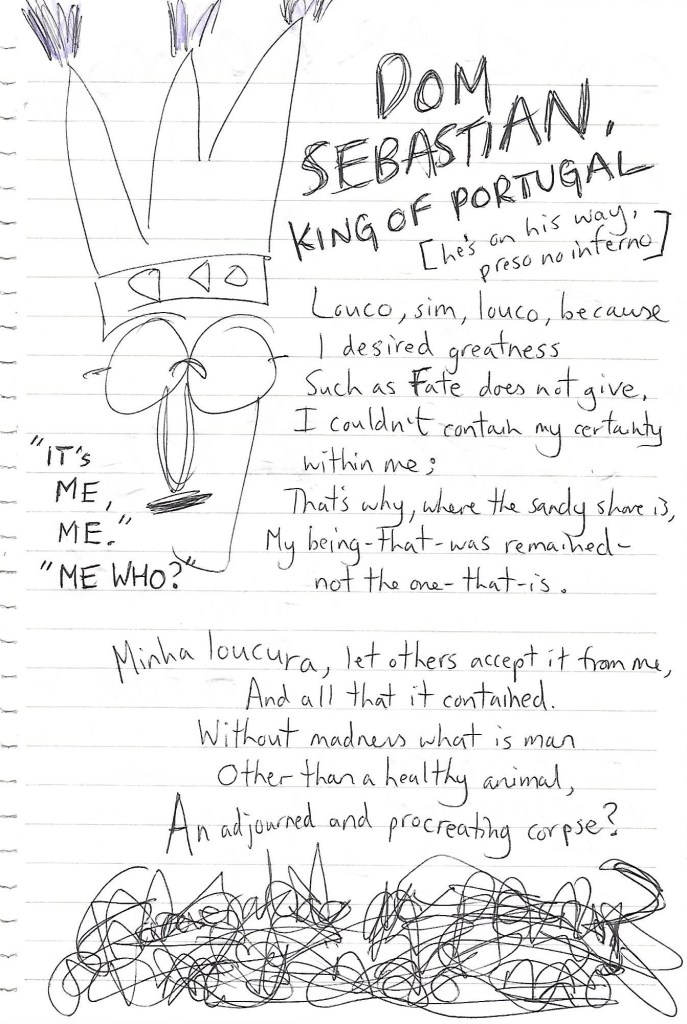 DOM
SEBASTIAN,
KING OF PORTUGAL
[he's on his way,
preso no inferno]
Louco, sim, louco, because
I desired greatness
Such as Fate does not give.
I couldn't contain my certainty
within me;
That's why, where the sandy shore is,
My being-that-was remained-
not the one-that-is.
"IT'S
ME,
ME."
"ME WHO?"
Minha loucura, let others accept it from me,
And all that it contained.
Without madness what is man
Other than a healthy animal,
An adjourned and procreating corpse?